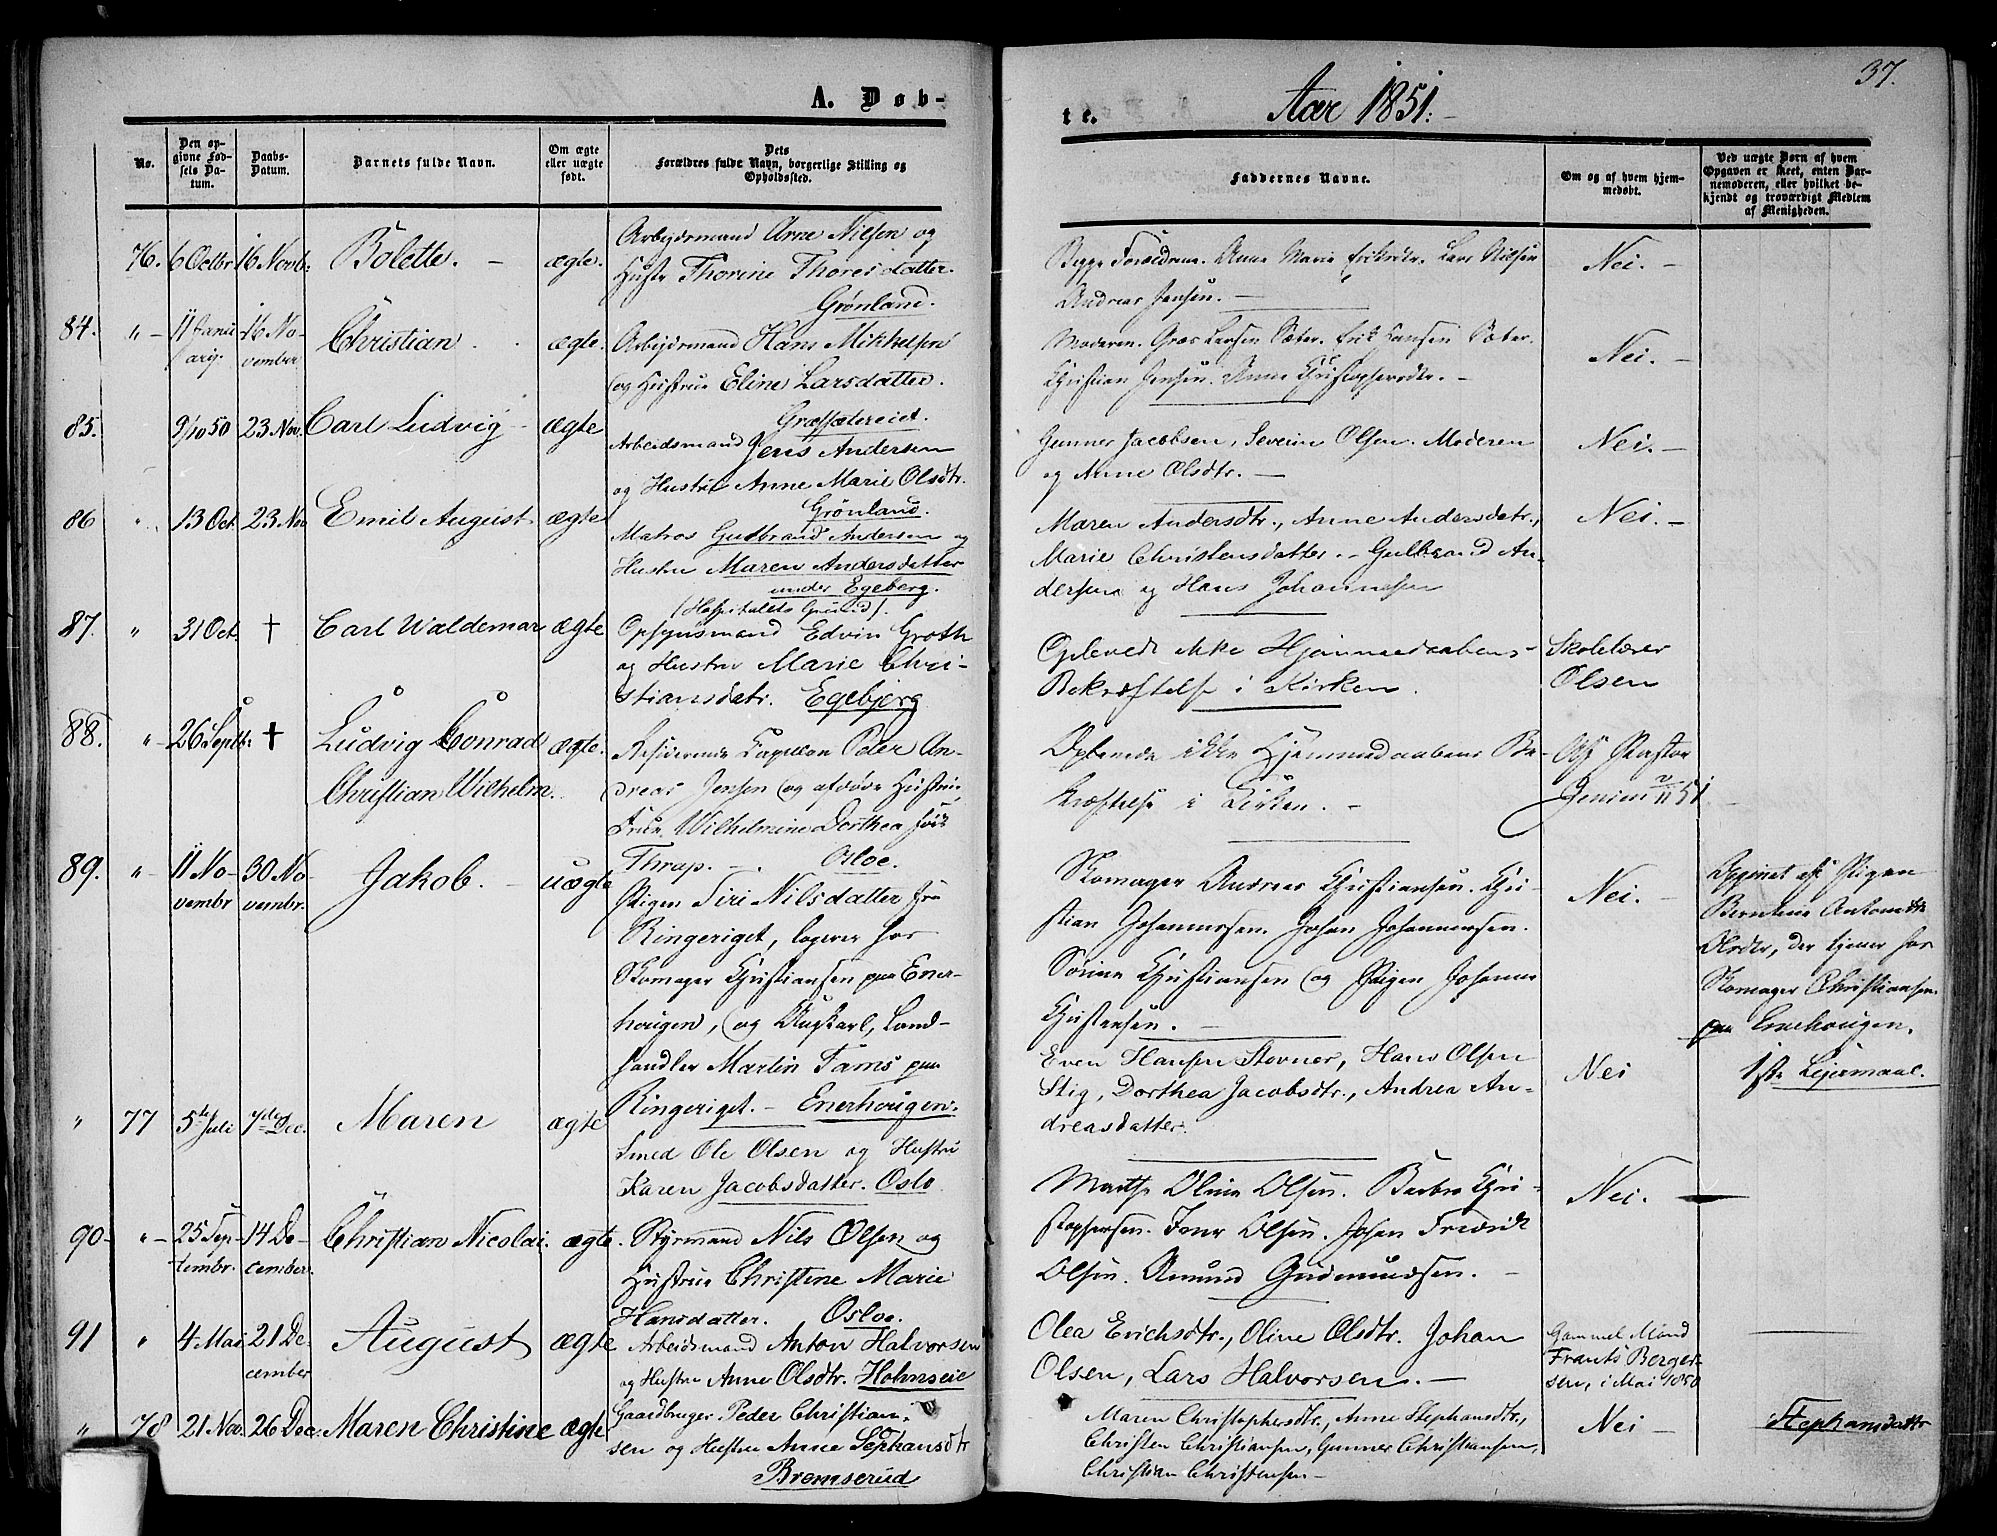 37.
A. Døb-
te.
Aar 1851.
No.
Den op-
givne Fød-
sels Da-
tum.
Daabs-
Datum.
Barnets fulde Navn.
Om ægte
eller uægte
født.
Dets
Forældres fulde Navn, borgerlige Stilling og
Opholdssted.
Faddernes Navne.
Om og af hvem hjem-
medøbt.
Ved uægte Børn af hvem
Opgaven er skeet, enten Bar-
nemoderen, eller hvilket be-
kjendt og troværdigt Medlem
af Menigheden.
76. 6 Octbr. 16 Novb. Bolette. ægte.
Arbeidsmand Arne Nielsen og
Hustr Thorine Thoresdatter.
Grønland.
Begge Forældrene. Anne Marie Eriksdtr. Lars Nielsen
Andreas Jensen.
Nei.
84. " 11 Janu
arij. 16 No-
vember Christian. ægte.
Arbeidsmand Hans Mikkelsen
og Hustrue Eline Larsdatter.
Græssætereiet.
Moderen. Larsen Sæter. Erik Hansen Sæter.
Christian Jensen. Anne Christophersdtr.
Nei.
85. 9/10 50 23 Nov. Carl Ludvig ægte
Arbeidsmand Jens Andersen
og Hustrue Anne Marie Olsdtr.
Grønland.
Gunner Jacobsen, Severin Olsen. Moderen
og Anne Olsdtr.
Nei.
86 " 13 Oct. 23 Nov Emil August ægte
Matros Gudbrand Andersen og
Hustru Maren Andersdatter
under Egeberg.
(Hospitalets Grund).
Maren Andersdtr., Anne Andersdatr.,
Marie Christensdatter. Gulbrand An-
dersen og Hans Johannesen
Nei.
87. " 31 Oct. † Carl Waldemar ægte
Opsynsmand Edvin Groth
og Hustru Marie Chri-
stiansdatr. Egebjerg
Oplevede ikke Hjemmedaabens
Bekræftelse i Kirken.
Skolelærer
Olsen
88. " 26 Septbr † Ludvig Conrad
Christian Wilhelm. ægte.
Residerende Capellan Peter An-
dreas Jensen og afdøde Hustru,
Frue Wilhelmine Dorthea
Thrap. Osloe.
Oplevede ikke Hjemmedaabens Be-
kræftelse i Kirken.
Pastor
Jensen 51
89. " 11 No-
vembr 30 No-
vembr. Jakob. uægte
Pigen Siri Nilsdatter fra
Ringeriget, logerer hos
Skomager Christiansen paa Ener-
hougen, og Ungkarl, Land-
handler Martin Fams paa
Ringeriget. Enerhougen.
Skomager Andreas Christiansen. Chri-
stian Johannessen. Johan Johannessen.
Sørine Christiansen og Pigen Johanne
Christensen.
Nei.
Opgivet af Pigen
Bernthine Antonette
Olsdtr, der tjener hos
Skomager Christiansen
paa Enerhougen.
1ste Leiermaal.
" 77 5te Juli 7de Dec. Maren ægte
Smed Ole Olsen og Hustru
Karen Jacobsdatter. Oslo
Even Hansen Stovner, Hans Olsen
Stig, Dorthea Jacobsdtr., Andrea An-
dreasdatter.
Nei
90 " 25 Sep-
tembr. 14 De-
cember. Christian Nicolai. ægte.
Styrmand Nils Olsen og
Hustrue Christine Marie
Hansdatter. Osloe.
Marthe Oline Olsen. Barbra Chri-
stophersen. Olsen. Johan Fredrik
Olsen. Amund Gudmundsen.
Nei.
91 " 4 Mai 21 De-
cember August ægte
Arbeidsmand Anton Halvorsen
og Hustru Anne Olsdtr. Hohnseie
Olea Erichsdtr., Oline Olsdtr. Johan
Olsen, Lars Halvorsen.
Gammel Mand
Frants Berger-
sen, i Mai 1850
" 78 21 Nov. 26 Dec. Maren Christine ægte
Gaardbruger Peder Christian-
sen og Hustru Anne Sephansdtr
Bremserud
Maren Christophersdtr., Anne Stephansdtr.,
Christen Christiansen, Gunner Christiansen,
Christian Christensen
Nei
Stephansdattr